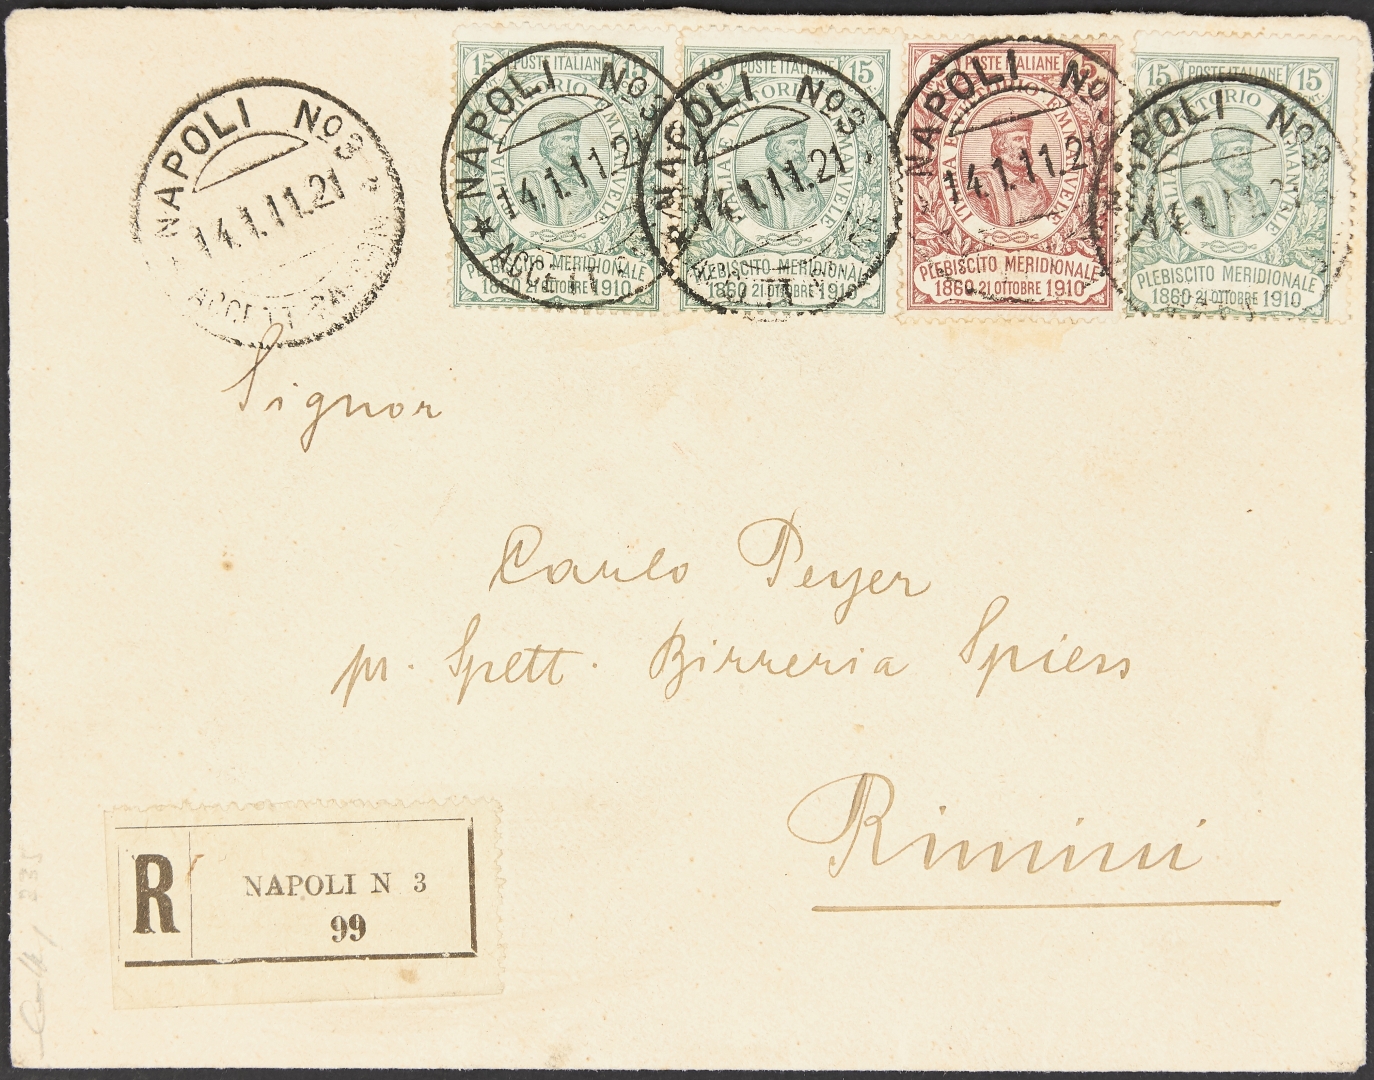 NAPOLI No3
14.1.11.21
15 POSTE ITALIANE 15
ITALIA E VITTORIO EMANUELE
PLEBISCITO MERIDIONALE
1860 21 OTTOBRE 1910
NAPOLI No3
14.1.11.21
15 POSTE ITALIANE 15
ITALIA E VITTORIO EMANUELE
PLEBISCITO MERIDIONALE
1860 21 OTTOBRE 1910
NAPOLI No3
14.1.11.21
5 POSTE ITALIANE 5
ITALIA E VITTORIO EMANUELE
PLEBISCITO MERIDIONALE
1860 21 OTTOBRE 1910
NAPOLI No3
14.1.11.2
15 POSTE ITALIANE 15
ITALIA E VITTORIO EMANUELE
PLEBISCITO MERIDIONALE
1860 21 OTTOBRE 1910
NAPOLI No3
Signor
Carlo Peyer
pr. Spett. Birreria Spiess
Rimini
R NAPOLI N 3
99